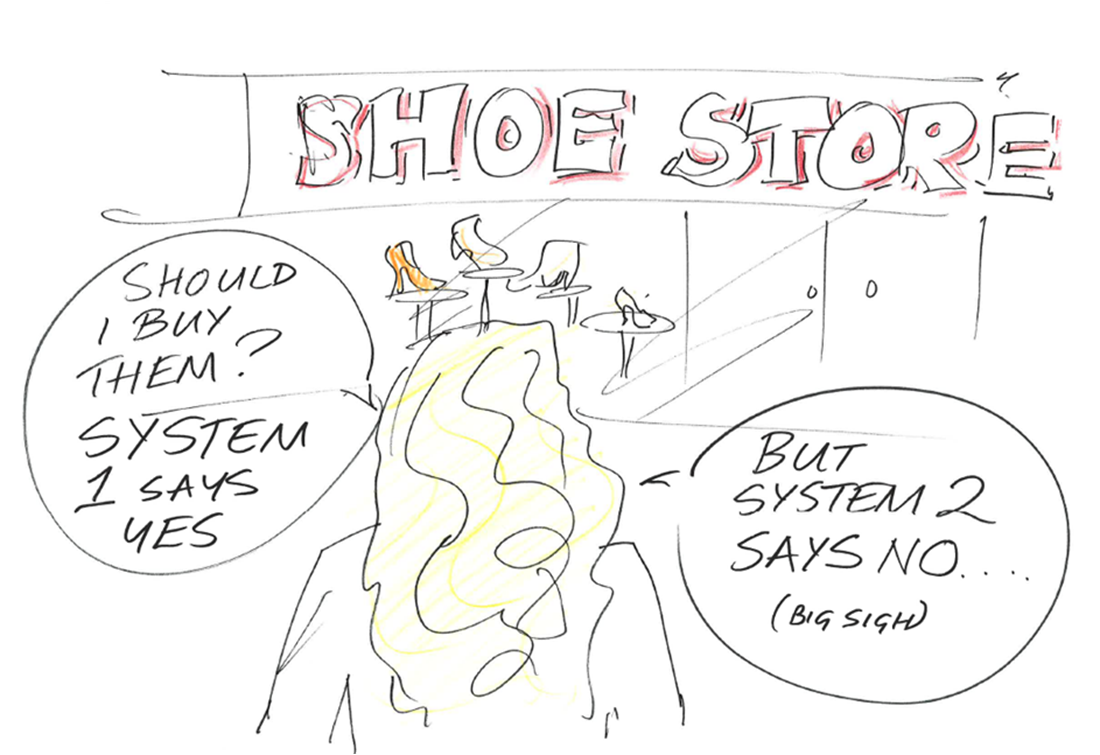 SHOE STORE
SHOULD
I BUY
THEM?
SYSTEM
1 SAYS
YES
BUT
SYSTEM 2
SAYS NO....
(BIG SIGH)